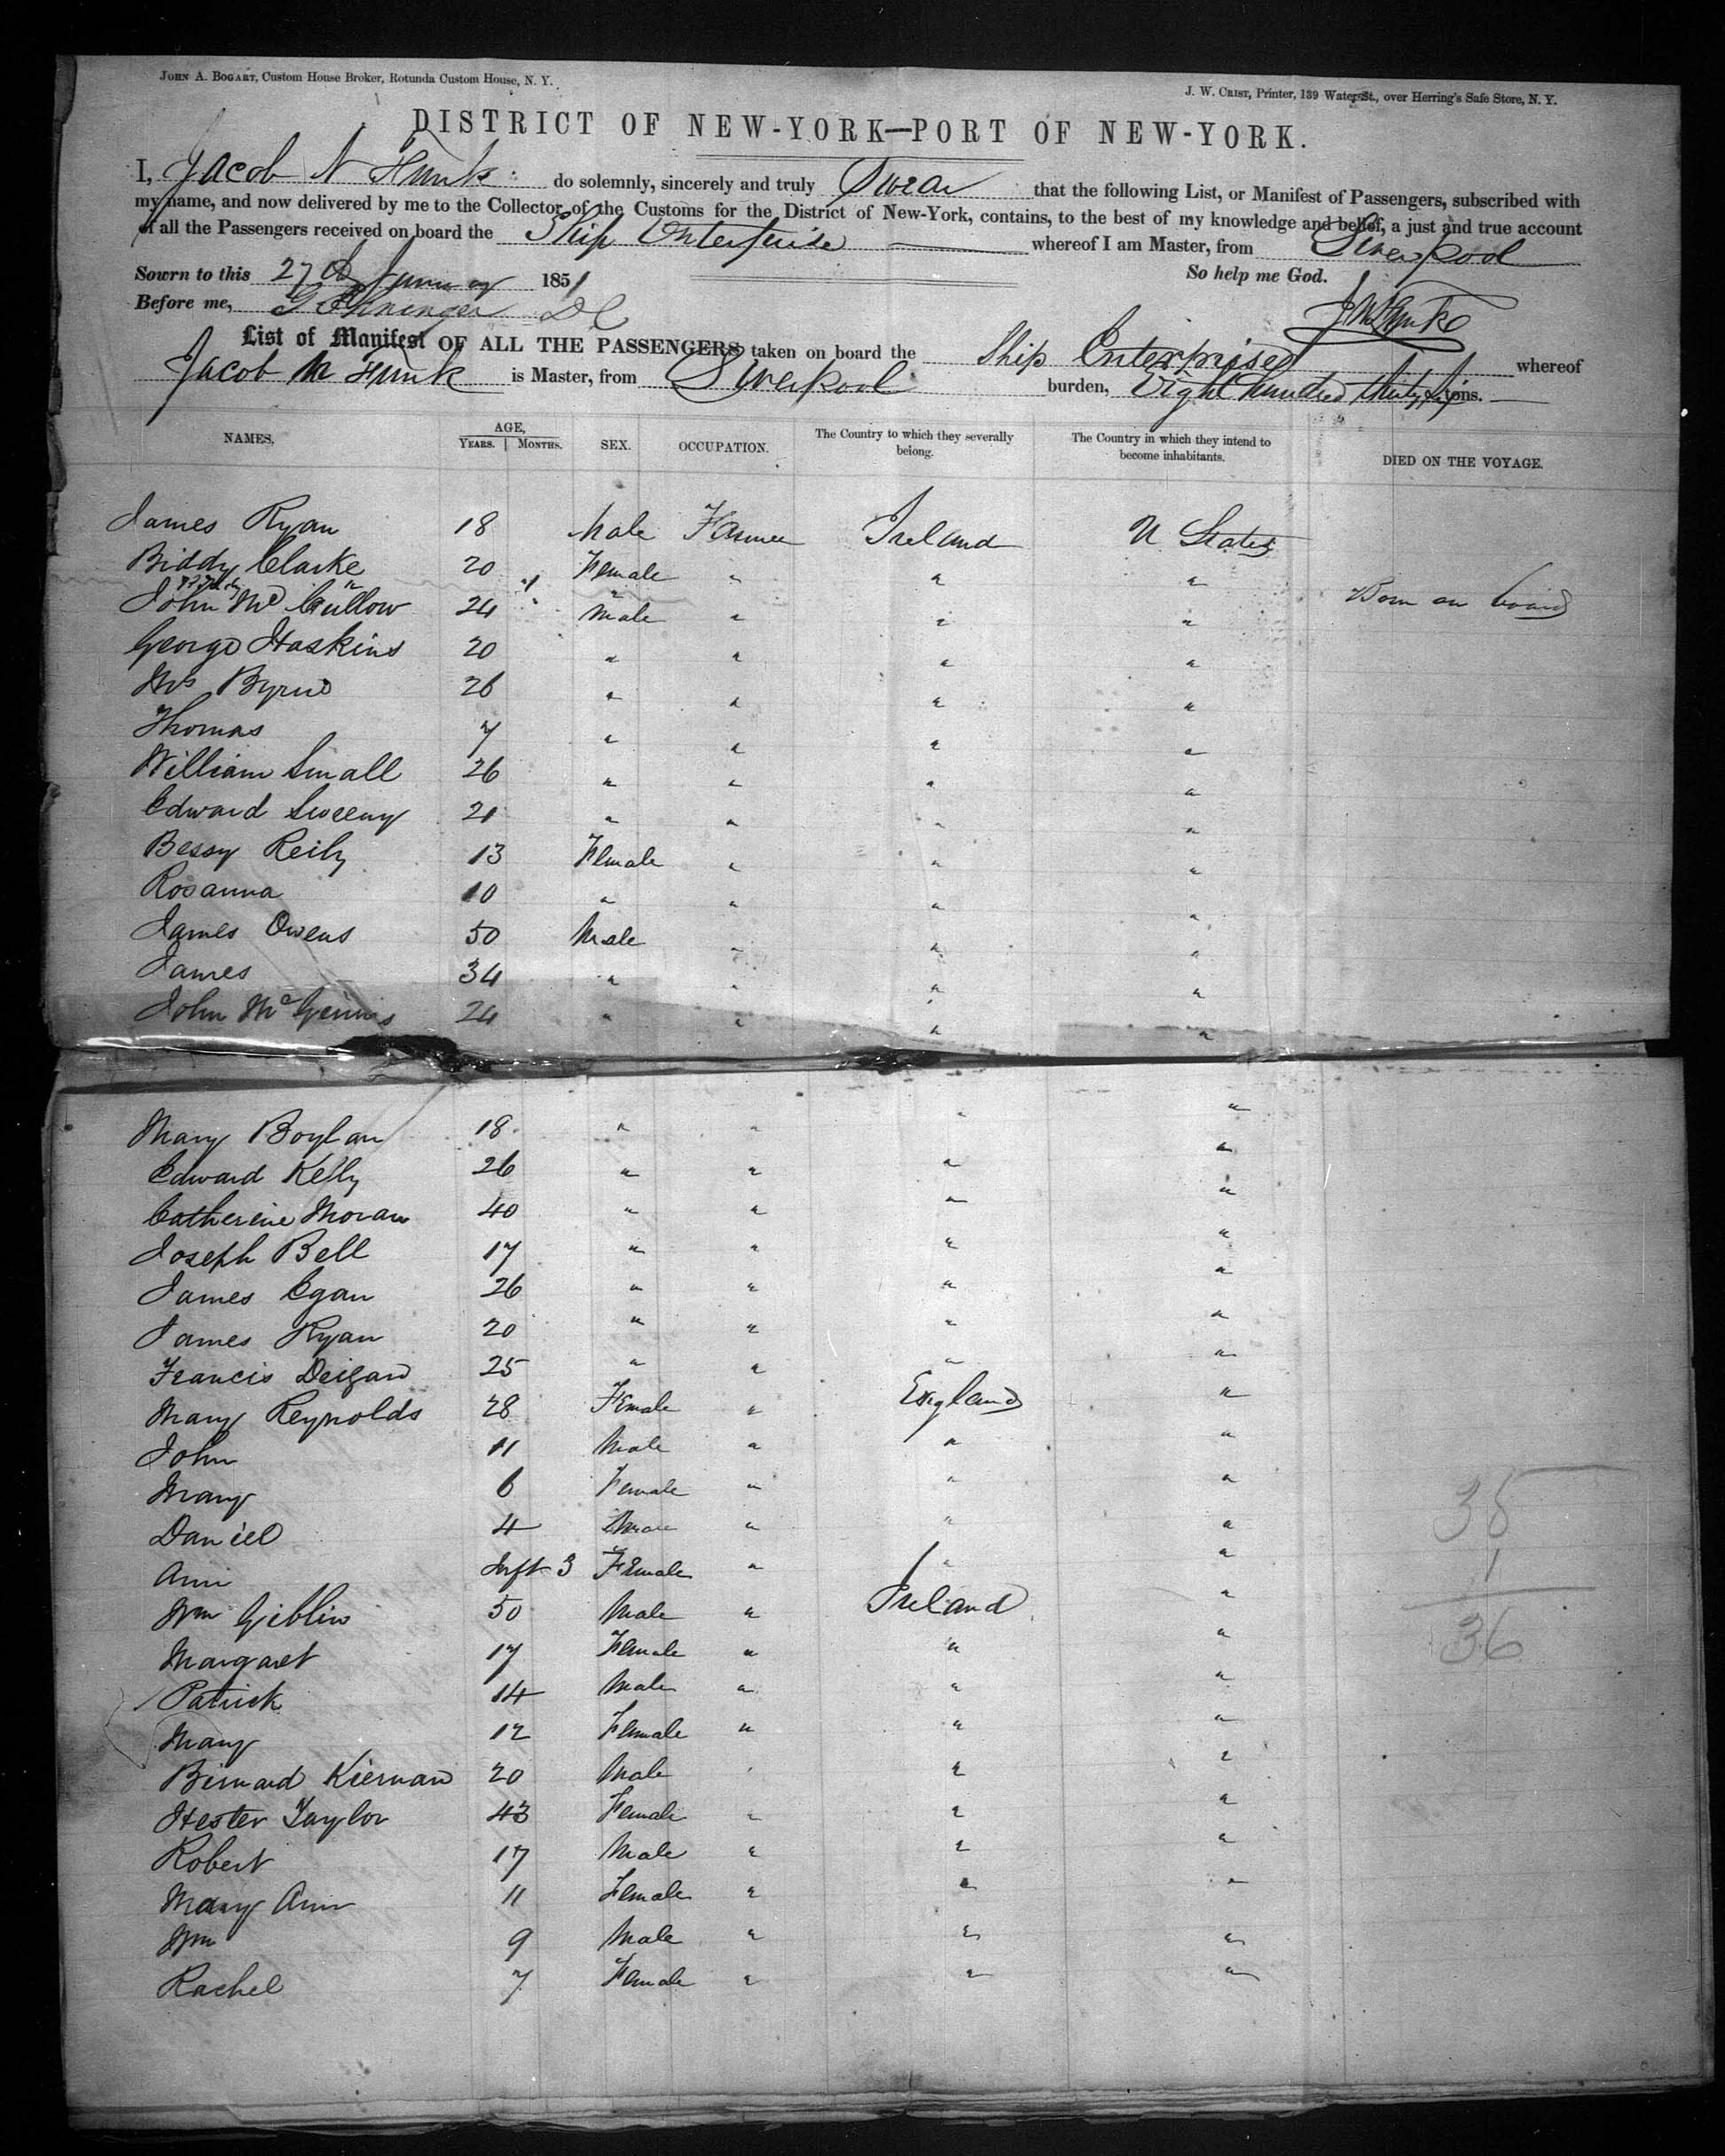 JOHN A. BOGART, Custom House Broker, Rotunda Custom House, N. Y.
J. W. CRIST, Printer, 139 Water St., over Herring's Safe Store, N. Y.
DISTRICT OF NEW-YORK—PORT OF NEW-YORK.
I, Jacob N Funk do solemnly, sincerely and truly Swear that the following List, or Manifest of Passengers, subscribed with
my name, and now delivered by me to the Collector of the Customs for the District of New-York, contains, to the best of my knowledge and belief, a just and true account
of all the Passengers received on board the Ship Enterprise whereof I am Master, from Liverpool
Sowrn to this 27 January 1851 So help me God.
Before me,
List of Manifest OF ALL THE PASSENGERS taken on board the Ship Enterprise whereof
Jacob M Funk is Master, from Liverpool burden, Eight hundred thirty six tons.
NAMES. AGE, YEARS. MONTHS. SEX. OCCUPATION. The Country to which they severally belong. The Country in which they intend to become inhabitants. DIED ON THE VOYAGE.
James Ryan 18 Male Farmer Ireland U States
Biddy Clarke 20 Female " " "
" 1 " Born on board
John McCullow 24 Male " " "
George Haskins 20 " " " "
Mrs Byrne 26 " " " "
Thomas 7 " " " "
William Small 26 " " " "
Edward Sweeny 21 " " " "
Bessy Reily 13 Female " " "
Rosanna 10 " " " "
James Owens 50 Male " " "
James 34 " " " "
John McGinnis 24 " " " "
Mary Boylan 18 " " " "
Edward Kelly 26 " " " "
Catherine Moran 40 " " " "
Joseph Bell 17 " " " "
James Egan 26 " " " "
James Ryan 20 " " " "
Francis Deigan 25 " " " "
Mary Reynolds 28 Female " England "
John 11 Male " " "
Mary 6 Female " " "
Daniel 4 Male " " "
Ann Inft 3 Female " " "
Wm Giblin 50 Male " Ireland "
Margaret 17 Female " " "
Patrick 14 Male " " "
Mary 12 Female " " "
Bernard Kiernan 20 Male " " "
Hester Taylor 43 Female " " "
Robert 17 Male " " "
Mary Ann 11 Female " " "
Wm 9 Male " " "
Rachel 7 Female " " "
35
1
36